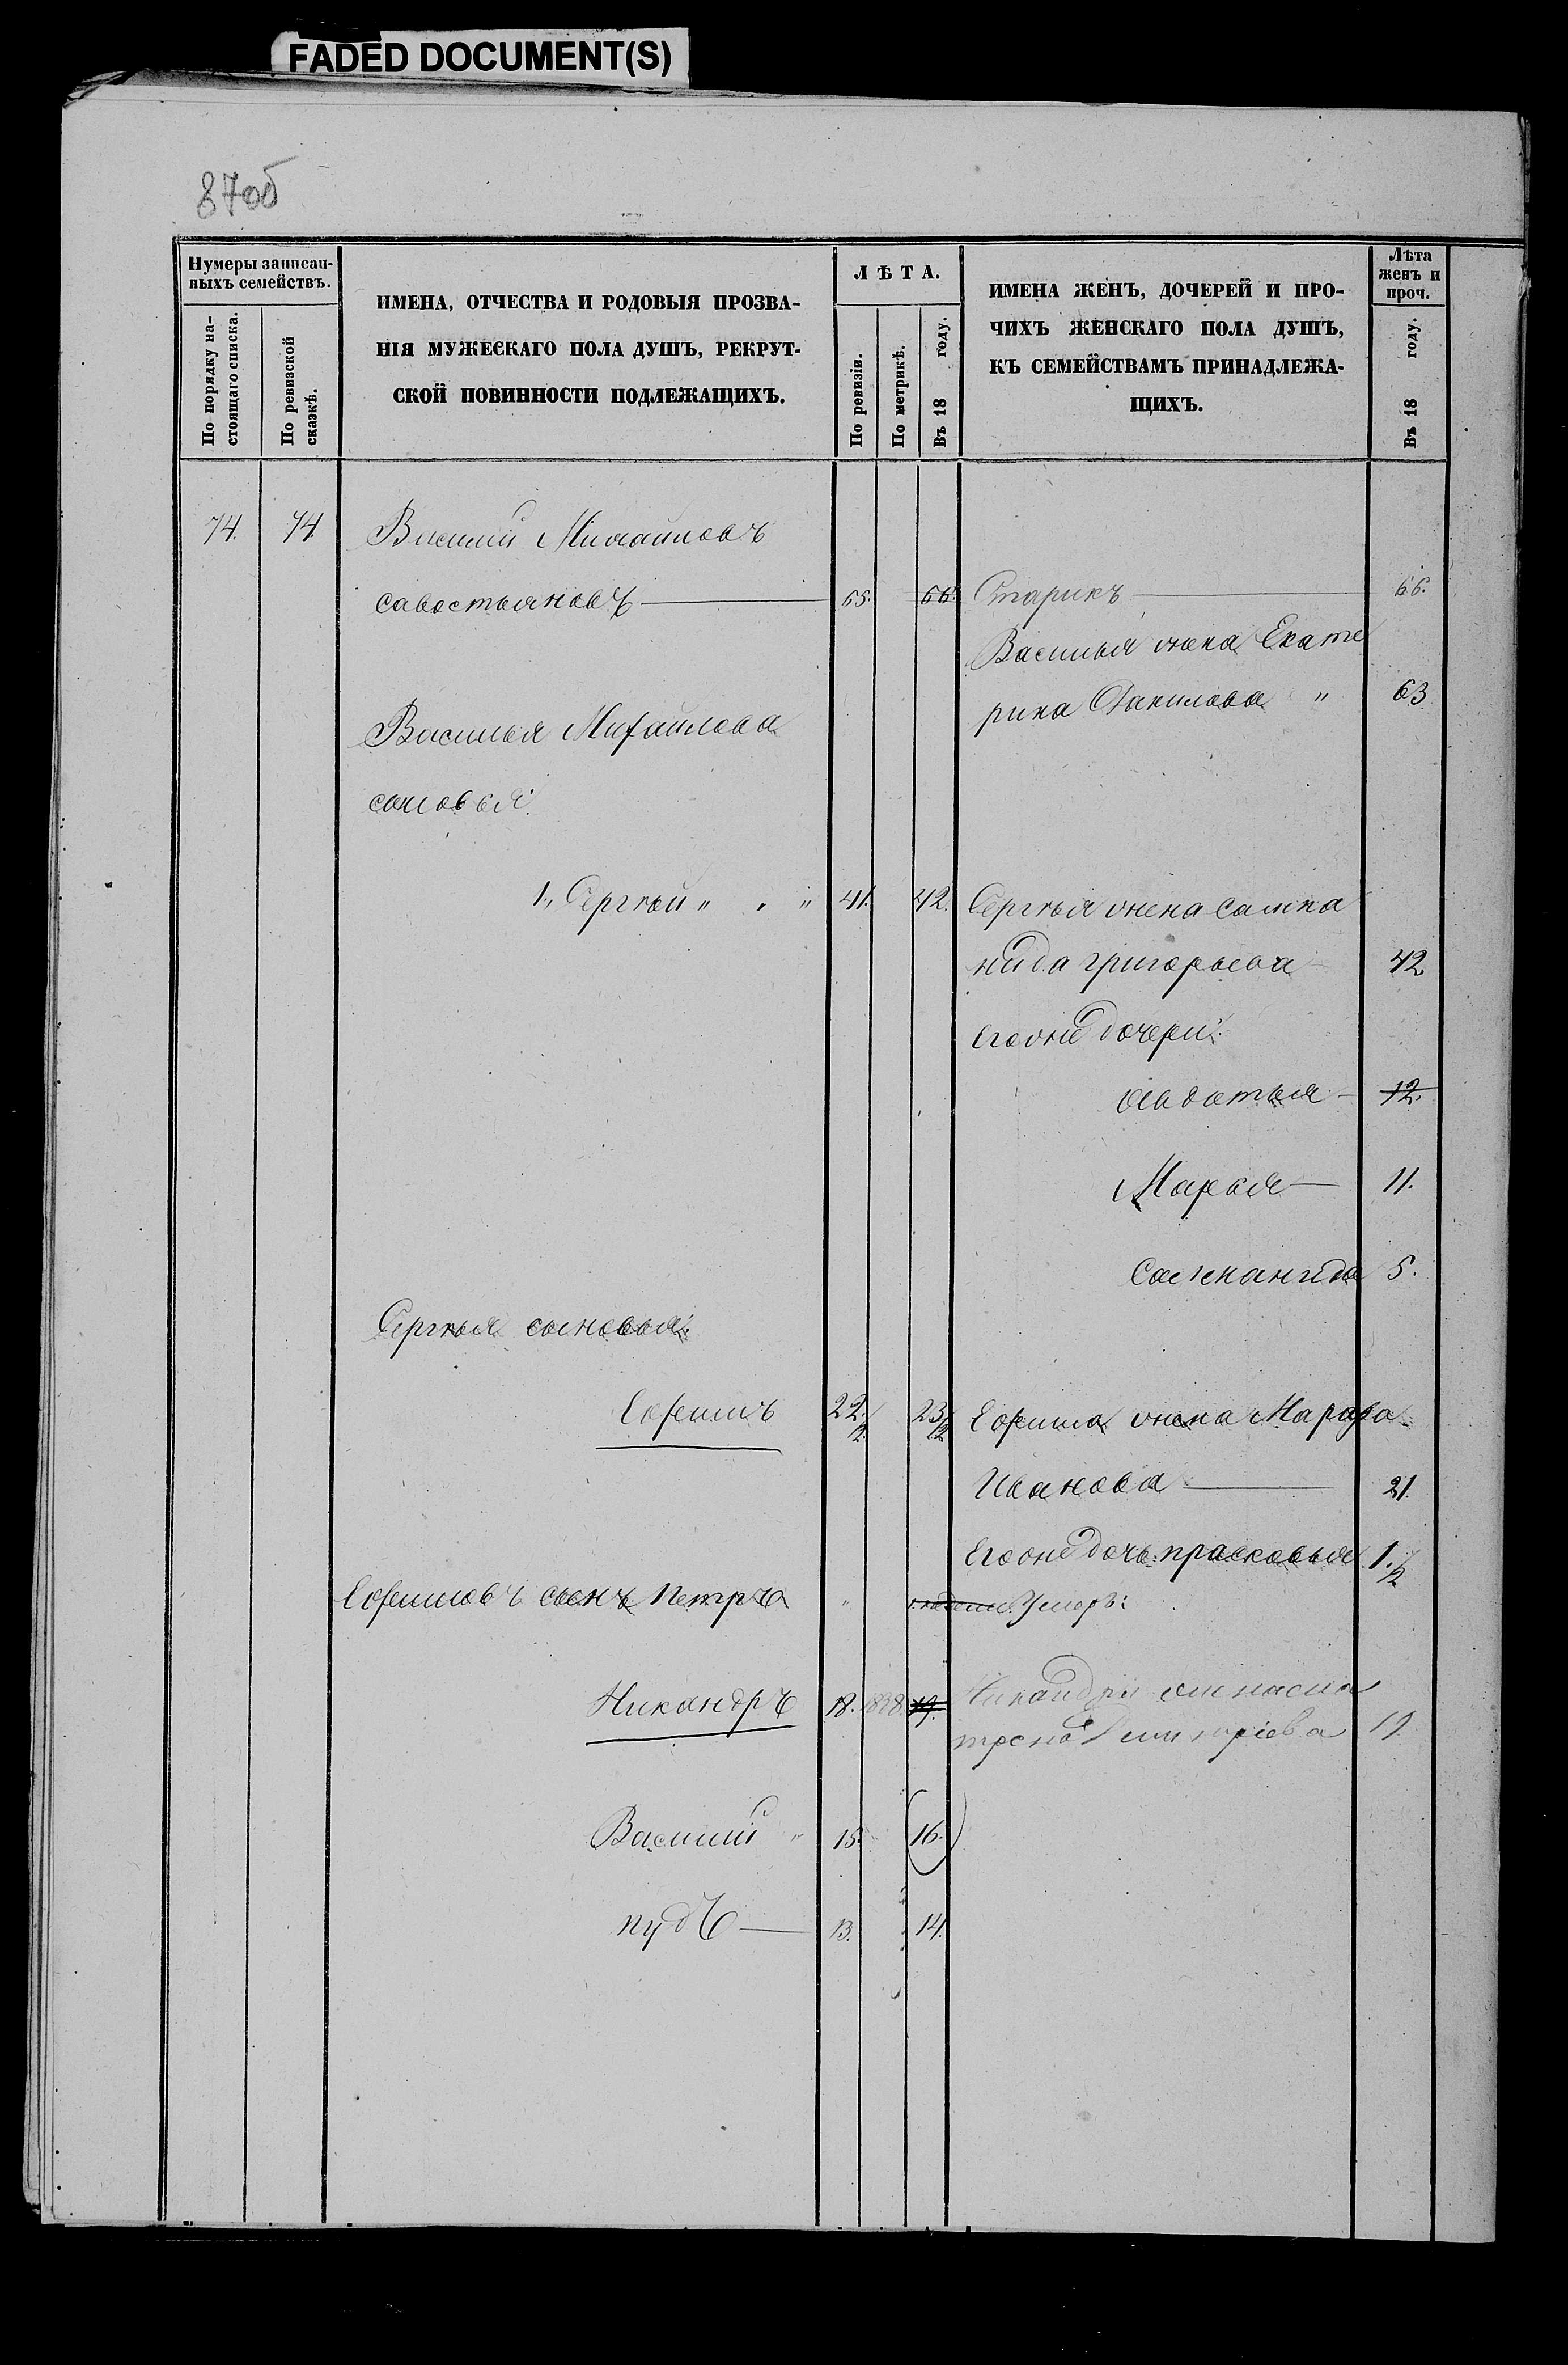 FADED DOCUMENT(S)
87об
Нумеры записан-
ныхъ семействъ.
По порядку на-
стоящаго списка.
По ревизской
сказкѣ.
ИМЕНА, ОТЧЕСТВА И РОДОВЫЯ ПРОЗВА-
НІЯ МУЖЕСКАГО ПОЛА ДУШЪ, РЕКРУТ-
СКОЙ ПОВИННОСТИ ПОДЛЕЖАЩИХЪ.
ЛѢТА.
По ревизіи.
По метрикѣ.
Въ 18 году.
ИМЕНА ЖЕНЪ, ДОЧЕРЕЙ И ПРО-
ЧИХЪ ЖЕНСКАГО ПОЛА ДУШЪ,
КЪ СЕМЕЙСТВАМЪ ПРИНАДЛЕЖА-
ЩИХЪ.
Лѣта
женъ и
проч.
Въ 18 году.
74. 74 Василій Михайловъ
савостьяновъ 65. 66. Старикъ 66.
Василья жена Екате
рина Данилова " 63
Василья Михайлова
сыновья:
1, Сергѣй " " " 41. 42. Сергѣя жена
нида григорьева 42
Егоже дочери:
12.
Марья 11.
5.
Сергѣя сыновья:
Ефимъ 22 1/2 23 1/2 Ефима жена Марфа
Иванова 21.
Егоже дочь: прасковья 1. 1/2
Ефимовъ сынъ Петръ " Умеръ:
Никандръ 18. 1838. 19. Никандры жена
19
Василій " 15. 16.
пудъ 13. 14.